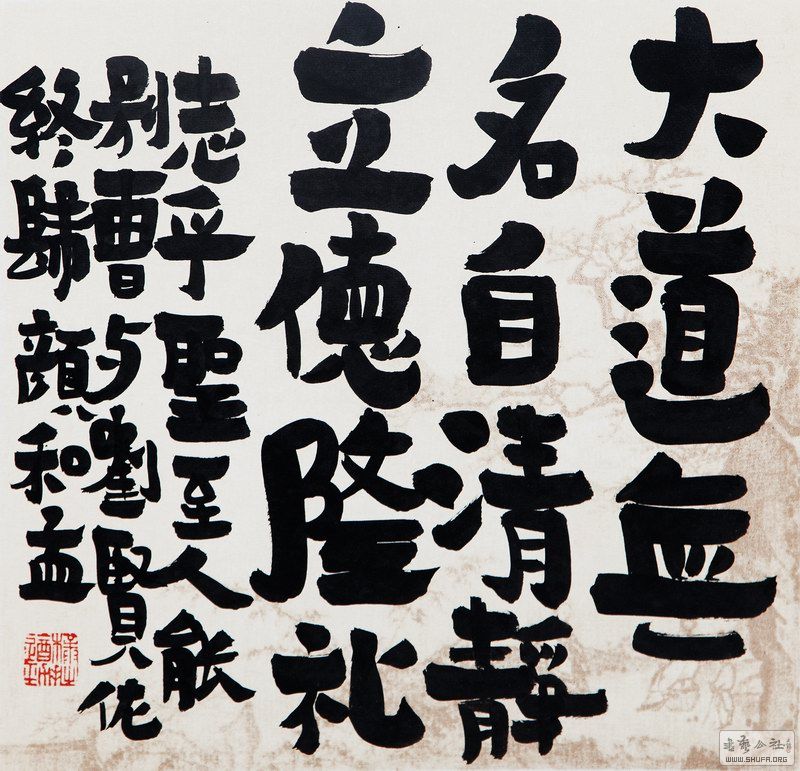 大道無
名自清靜
立德隆礼
志乎聖至人能
别曹与劉賢
終歸顏和孟
書藝公社
WWW.SHUFA.ORG